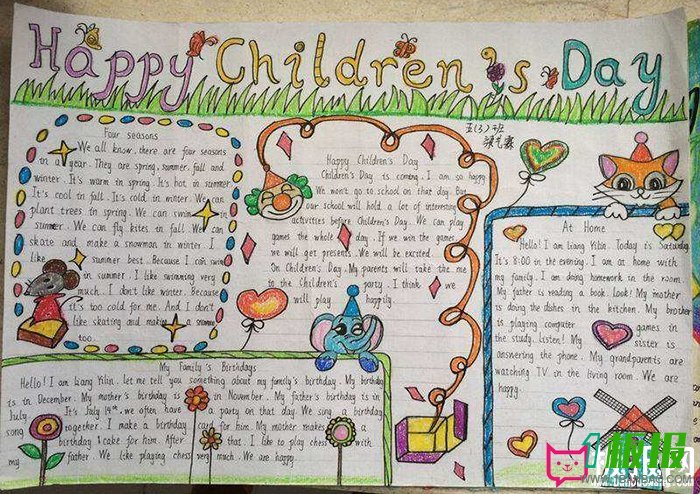 Happy Children's Day
五(3)班
Four seasons
We all know, there are four seasons
in a year. They are spring, summer, fall and
winter. It's warm in spring. It's hot in summer
It's cool in fall. It's cold in winter. We can
plant trees in spring. We can swim in
summer. We can fly kites in fall. We can
skate and make a snowman in winter. I
like summer best. Because I can swim
in summer. I like swimming very
much. I don't like winter. Because
it's too cold for me. And I don't
like skating and making a snowman
too.
Happy Children's Day
Children's Day is coming. I am so happy.
We won't go to school on that day. But
our school will hold a lot of interesting
activities before Children's Day. We can play
games the whole day. If we win the games
we will get presents. We will be excited.
On Children's Day. My parents will take me
to the Children's party. I think we
will play happily.
At Home
Hello! I am Liang Kilin. Today is Saturday
It's 8:00 in the evening. I am at home with
my family. I am doing homework in the room.
My father is reading a book. Look! My mother
is doing the dishes in the kitchen. My brother
is playing computer games in
the study. Listen! My sister is
answering the phone. My grandparents are
watching TV in the living room. We are
happy.
My Family's Birthdays
Hello! I am Liang Kilin. Let me tell you something about my family's birthday. My birthday
is in December. My mother's birthday is in November. My father's birthday is in
July. It's July 14th. we often have a party on that day. We sing a birthday
song together. I make a birthday card for him. My mother makes a
birthday cake for him. After that. I like to play chess with
my father. We like playing chess very much. We are happy.
板报